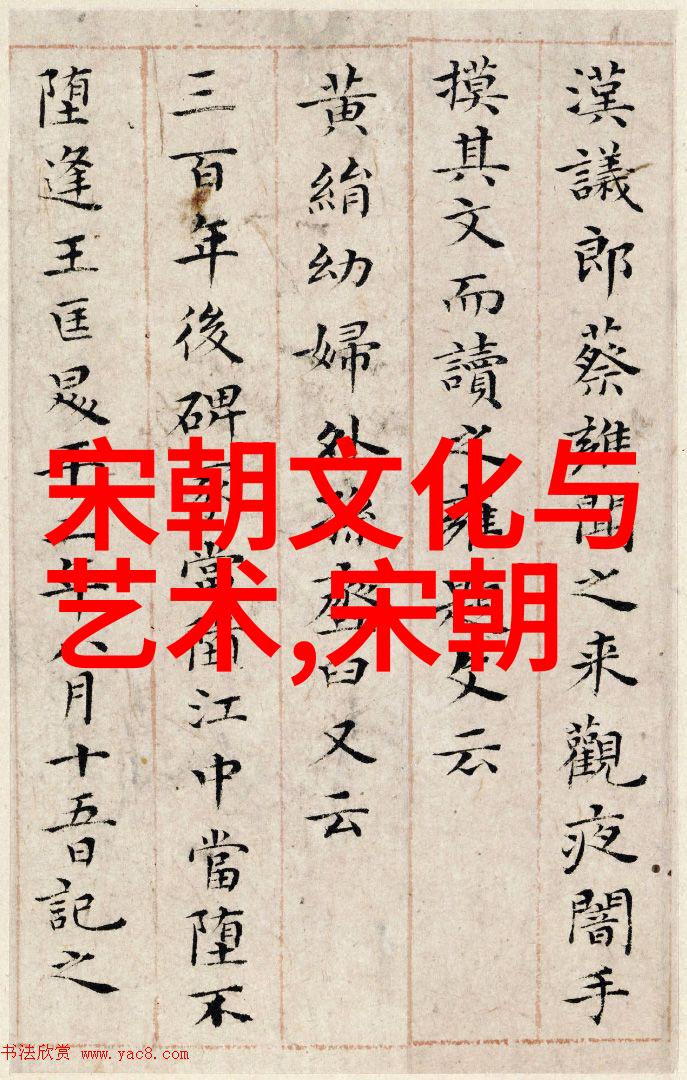 漢議郎蔡雍聞之来觀夜闇手
摸其文而讀之雍題文云
黄絹幼婦外孫臼又云
三百年後碑冢當江中當堕不
堕逢王匡年八月十五日記之
宋朝文化与
艺术,宋朝
书法欣赏 www.yac8.com